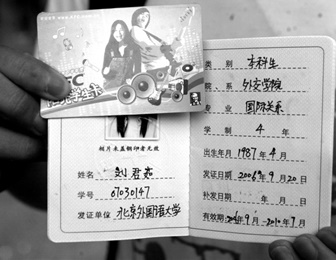 学生卡
相片未盖钢印者无效
姓名 刘君
学号 67030147
发证单位 北京外国语大学
类别 本科生
院、系 外交学院
专业 国际关系
学制 4 年
出生年月 1987年4月
发证日期 2006年9月20日
补发日期 年 月 日
有效期 2006年9月-2010年7月